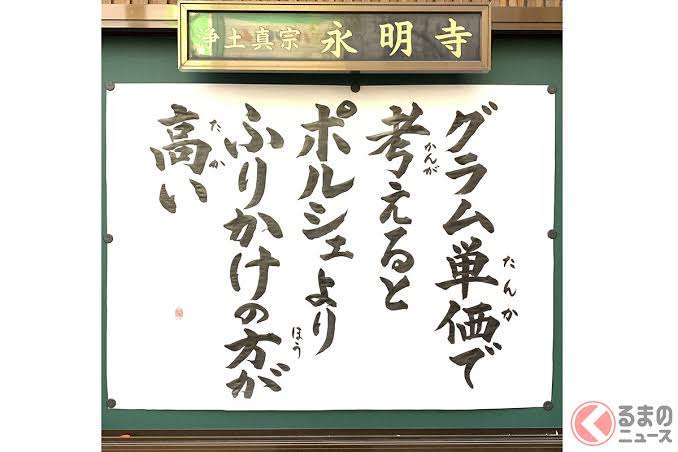 浄土真宗 永明寺
グラム単価で
たんか
考えると
かんが
ポルシェより
ふりかけの方が
ほう
高い
たか
くるまの
ニュース